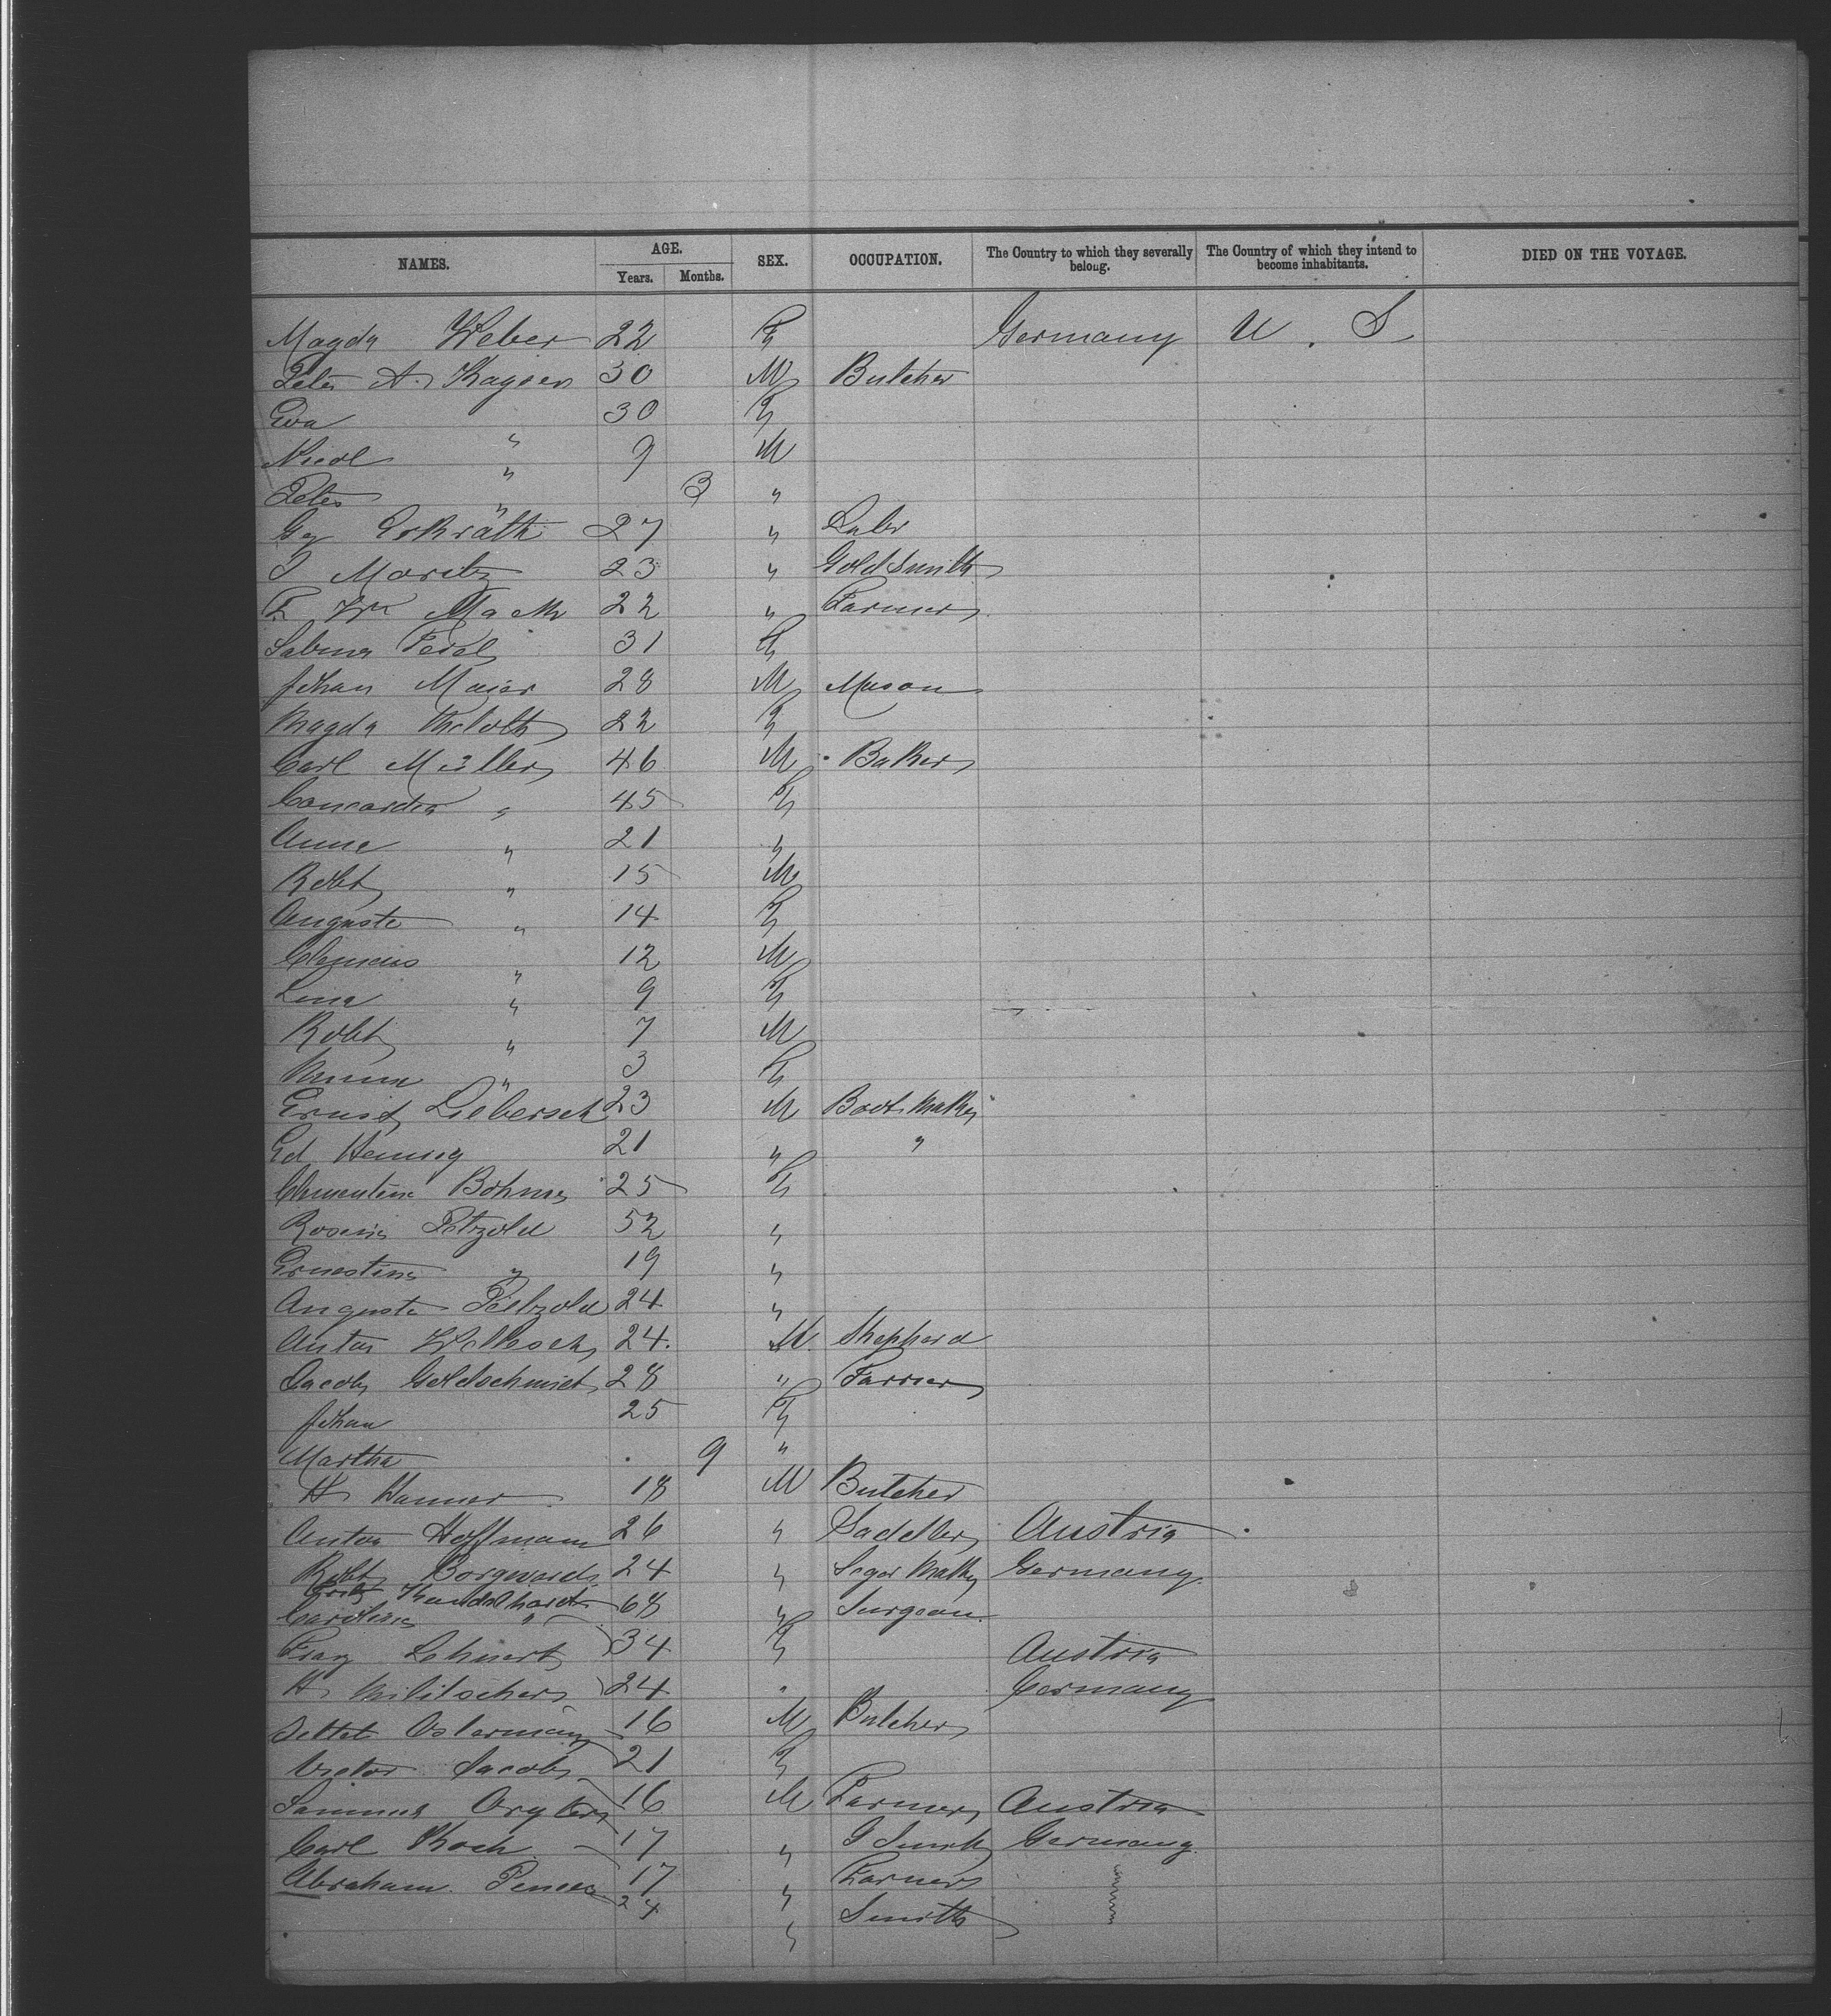 NAMES. AGE. Years. Months. SEX. OCCUPATION. The Country to which they severally belong. The Country of which they intend to become inhabitants. DIED ON THE VOYAGE.
Magda Weber 22 F Germany U. S
Peter A. Kayser 30 M Butcher
Eva " 30 F
Nicol " 9 M
Peter " 3 "
Gg Eskrath 27 " Labr
I Moritz 23 " Goldsmith
F. Wm Mack 22 " Farmer
Sabina Feidl 31 F
Johan Maier 28 M Mason
Magda 22 F
Carl Müller 46 M Baker
Concordia " 45 F
Anna " 21 "
Robt " 15 M
Auguste " 14 F
Clemens " 12 M
Lina " 9 F
Robt " 7 M
Minna " 3 F
Ernst Liebersch 23 M Boot Maker
Ed Hennig 21 " "
Clementine Böhme 25 F
Rosina Petzold 52 "
Ernestine " 19 "
Auguste Petzold 24 "
Anton 24. M. Shepherd
Jacob Goldschmidt 28 " Farrier
Johan 25 F
Martha 9 "
H Hanner 18 M Butcher
Anton Hoffmann 26 " Saddler Austria
Robt Borgwards 24 " Segar Maker Germany.
Fritz Kundelhardt 68 " Surgeon.
Caroline "
Franz Lehnert 34 F Austria
H Militscher 24 " Germany
Dettet Ostermann 16 M Butcher
Victor Jacob 21 F
Samuel 16 M Farmer Austria
Carl Koch 17 " G Smith Germany.
Abraham 17 " Farmer
24 " Smith